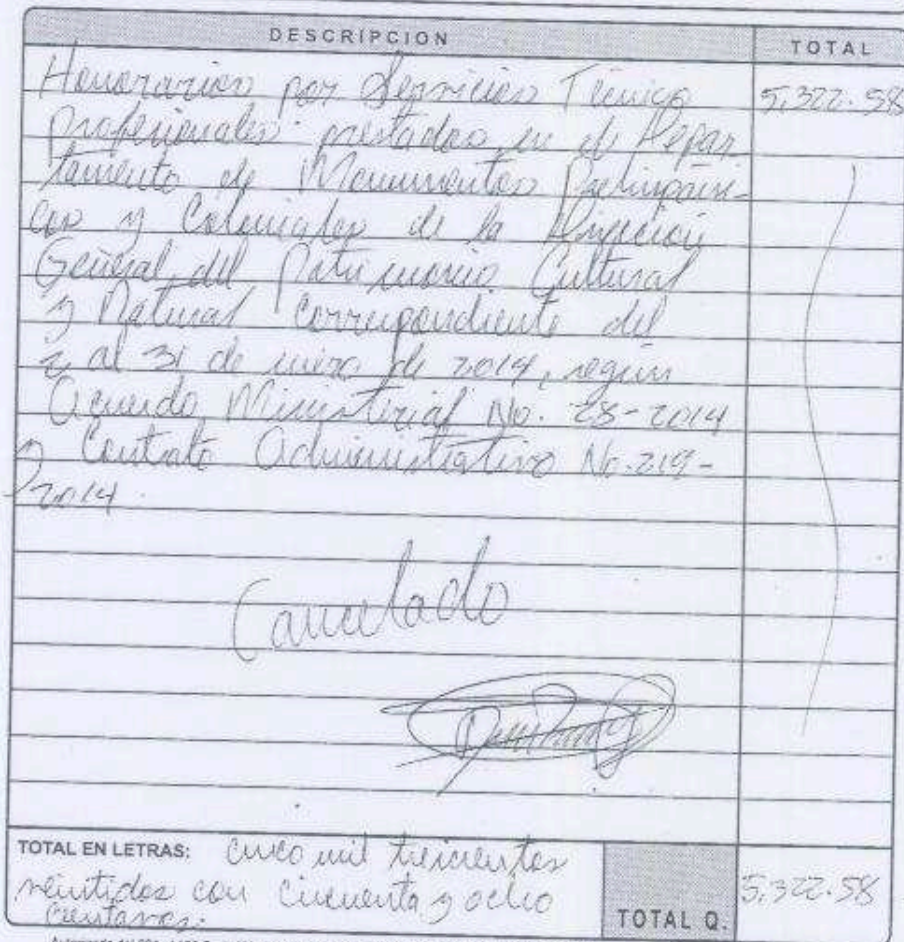 DESCRIPCION TOTAL
Honorarios por Servicios Técnico 5,322.58
profesionales prestados en el Depar
tamento de Monumentos Prehispáni-
cos y Coloniales de la Dirección
General del Patrimonio Cultural
y Natural correspondiente del
2 al 31 de enero de 2014, según
Acuerdo Ministerial No. 28-2014
y Contrato Administrativo No. 219-
2014.
Cancelado
TOTAL EN LETRAS: cinco mil trescientos
veintidos con cincuenta y ocho
centavos.
TOTAL Q. 5,322.58